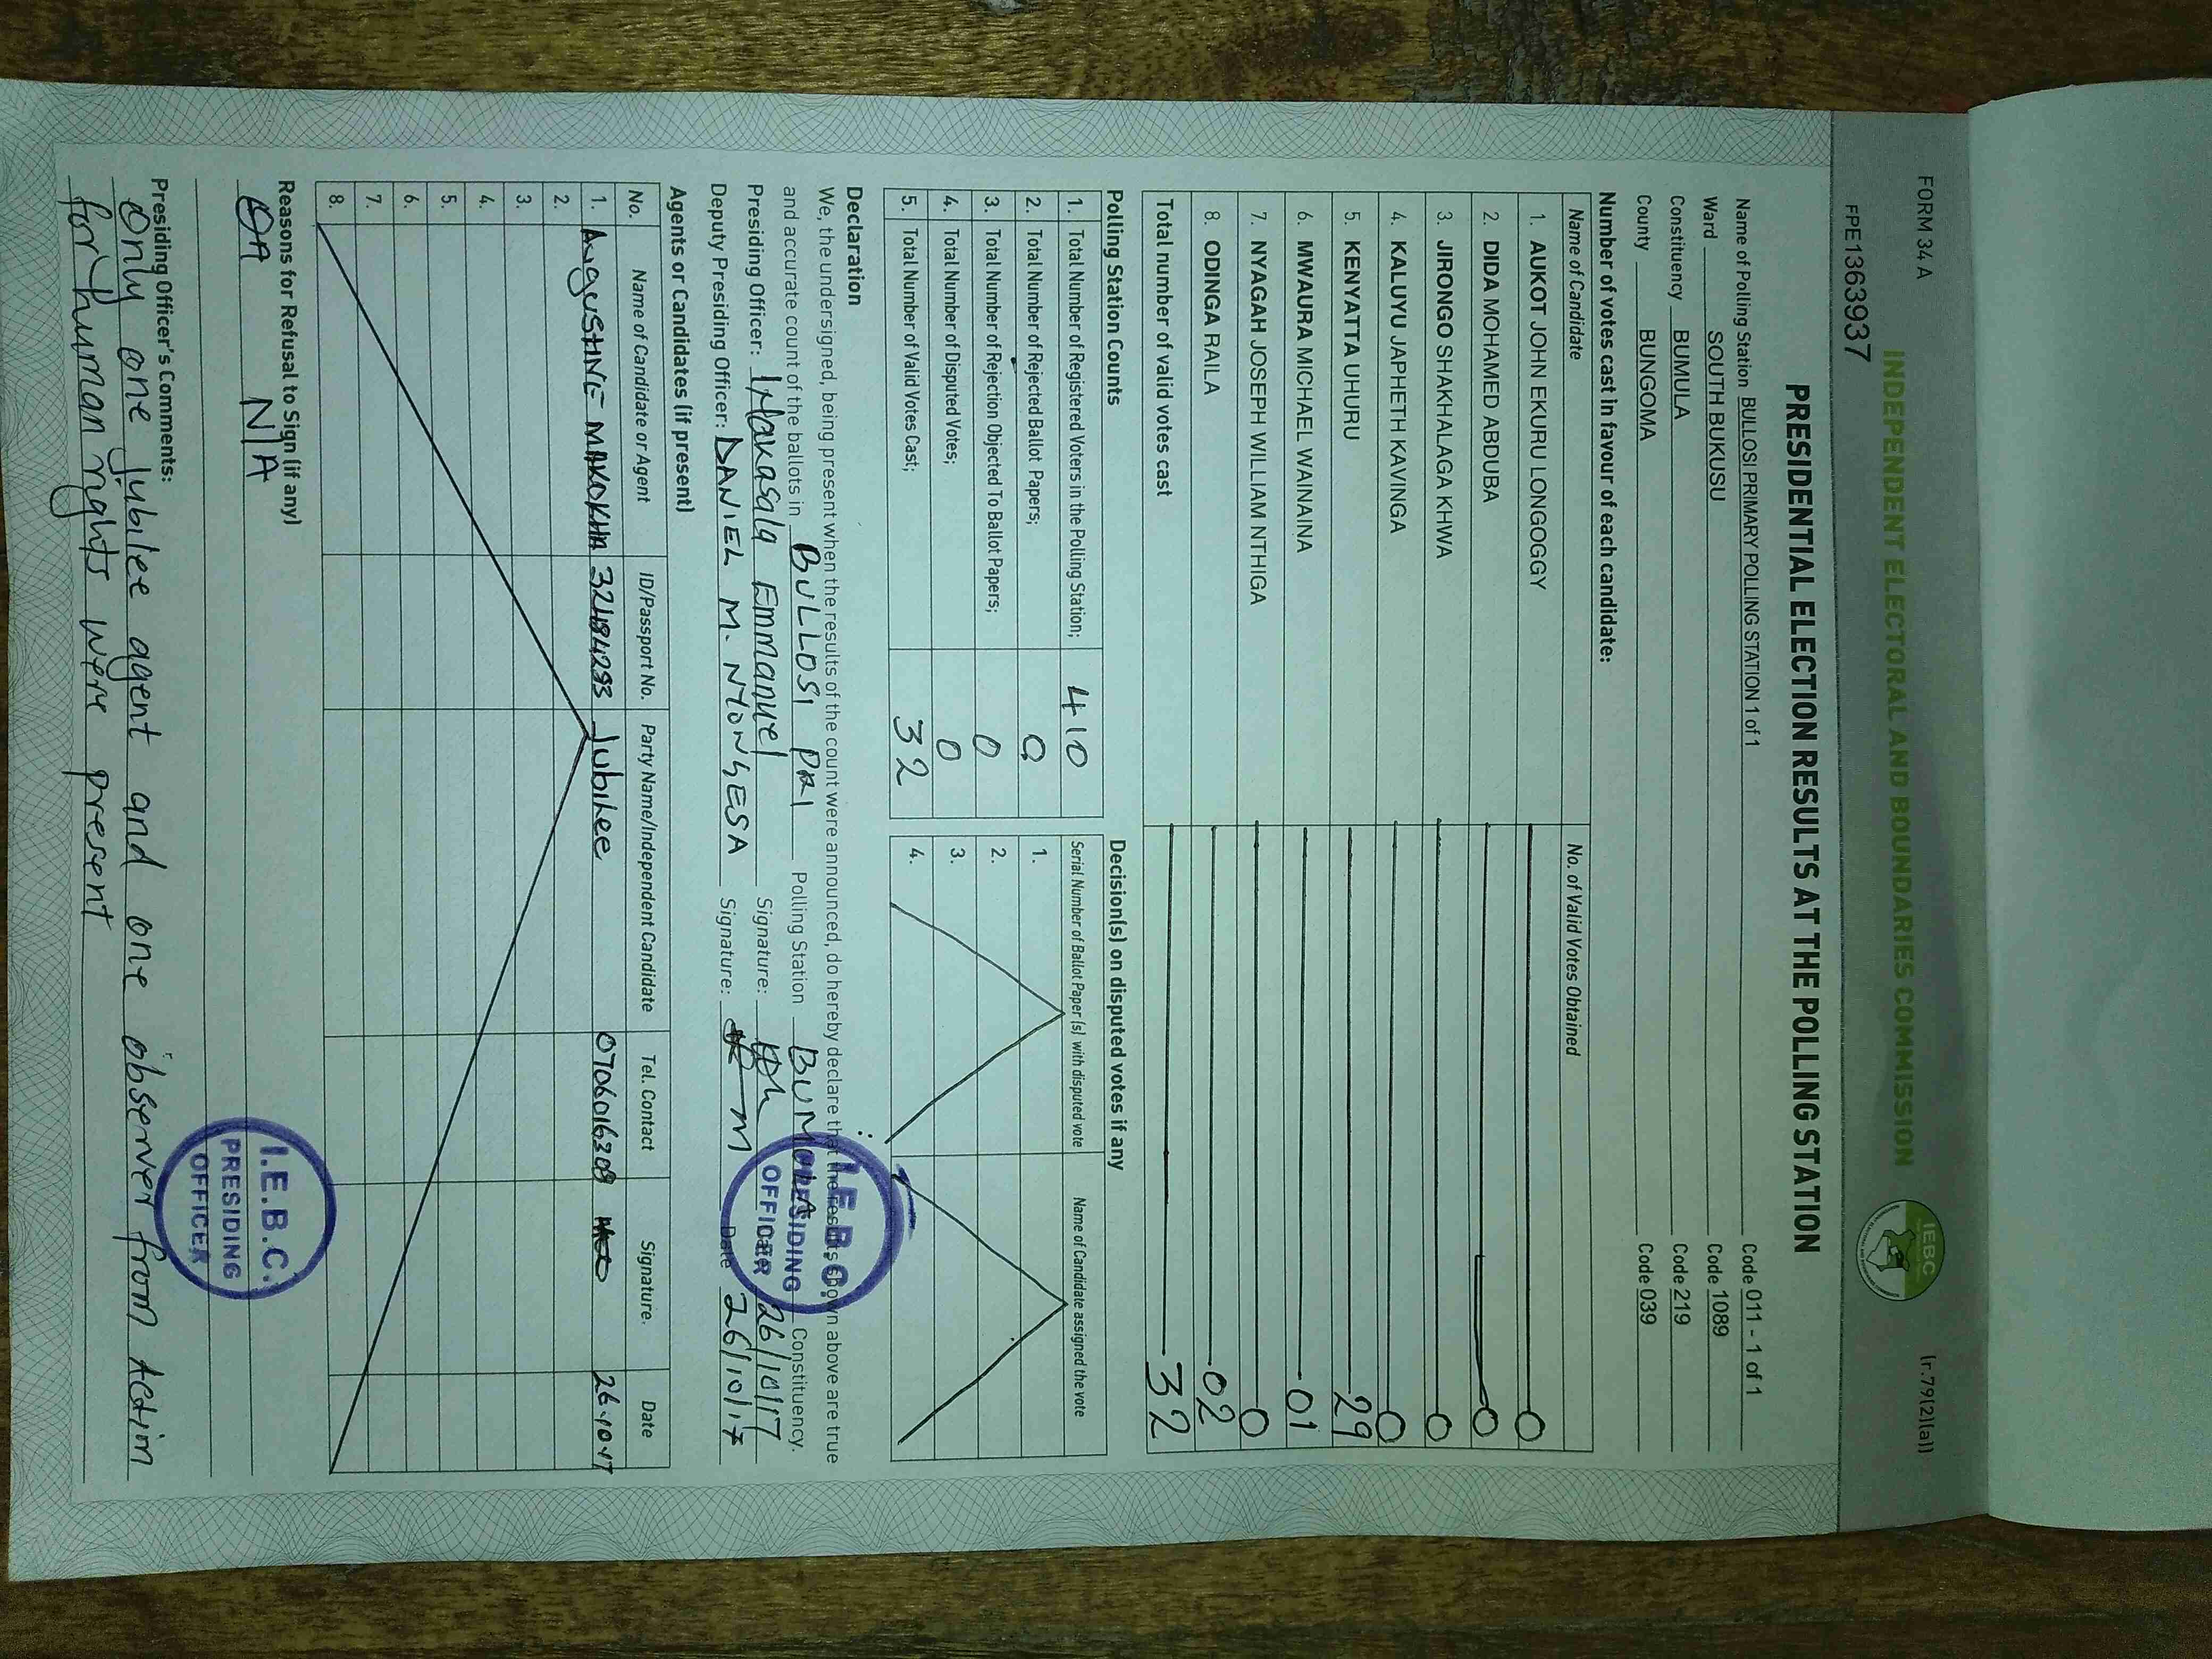 FORM 34 A
(r.79(2)(a))
INDEPENDENT ELECTORAL AND BOUNDARIES COMMISSION
IEBC
FPE1363937
PRESIDENTIAL ELECTION RESULTS AT THE POLLING STATION
Name of Polling Station BULLOSI PRIMARY POLLING STATION 1 of 1 Code 011 - 1 of 1
Ward SOUTH BUKUSU Code 1089
Constituency BUMULA Code 219
County BUNGOMA Code 039
Number of votes cast in favour of each candidate:
Name of Candidate No. of Valid Votes Obtained
1. AUKOT JOHN EKURU LONGOGGY 0
2. DIDA MOHAMED ABDUBA 0
3. JIRONGO SHAKHALAGA KHWA 0
4. KALUYU JAPHETH KAVINGA 0
5. KENYATTA UHURU 29
6. MWAURA MICHAEL WAINAINA 01
7. NYAGAH JOSEPH WILLIAM NTHIGA 0
8. ODINGA RAILA 02
Total number of valid votes cast 32
Polling Station Counts
1. Total Number of Registered Voters in the Polling Station; 410
2. Total Number of Rejected Ballot Papers; 0
3. Total Number of Rejection Objected To Ballot Papers; 0
4. Total Number of Disputed Votes; 0
5. Total Number of Valid Votes Cast; 32
Decision(s) on disputed votes if any
Serial Number of Ballot Paper (s) with disputed vote Name of Candidate assigned the vote
1.
2.
3.
4.
Declaration
We, the undersigned, being present when the results of the count were announced, do hereby declare that the results shown above are true
and accurate count of the ballots in BULLOSI PRI Polling Station BUMULA Constituency.
Presiding Officer: Emmanuel Signature: Date 26/10/17
Deputy Presiding Officer: DANIEL M. NYONGESA Signature: Date 26/10/17
I.E.B.C.
PRESIDING
OFFICER
Agents or Candidates (if present)
No. Name of Candidate or Agent ID/Passport No. Party Name/Independent Candidate Tel. Contact Signature. Date
1. AUGUSTINE MAKOKHA Jubilee 0706016308 26.10.17
2.
3.
4.
5.
6.
7.
8.
Reasons for Refusal to Sign (if any)
N/A
I.E.B.C.
PRESIDING
OFFICER
Presiding Officer's Comments:
Only one jubilee agent and one observer from Action
for human rights were present